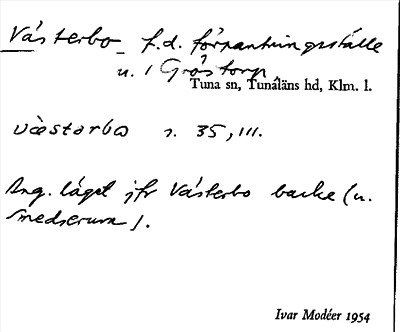 Västerbo f.d. förpantningsställe
u. 1 Gråstorp
Tuna sn, Tunaläns hd, Klm. l.
væstərbo s. 35, III.
Ang. läget jfr Västerbo backe (u.
Smedserum).
Ivar Modéer 1954